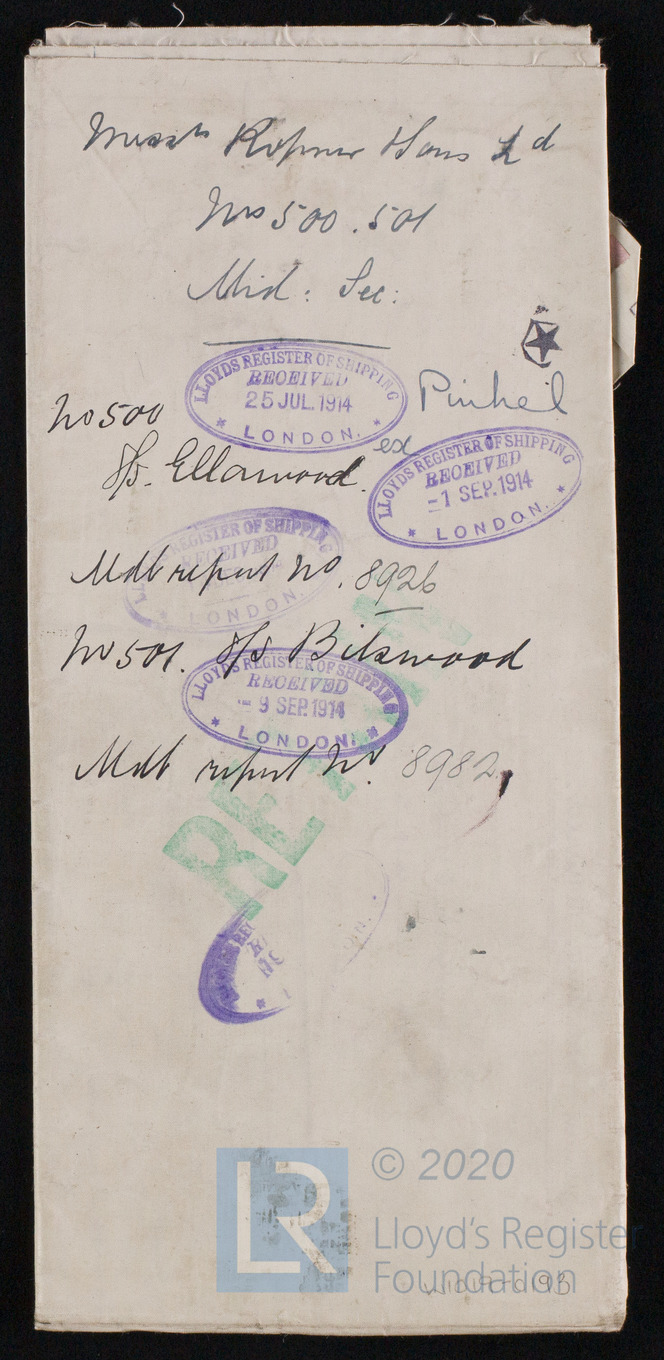 Messrs Ropner & Sons Ld
Nos 500.501
Mid: Sec:
LLOYDS REGISTER OF SHIPPING
RECEIVED
25 JUL. 1914
* LONDON. *
Pinhel
No 500
ex
S/S. Ellawood.
LLOYDS REGISTER OF SHIPPING
RECEIVED
-1 SEP. 1914
* LONDON. *
REGISTER OF SHIPPING
RECEIVED
LONDON.
Mdb report No. 8926
No 501. S/S Bilswood
LLOYDS REGISTER OF SHIPPING
RECEIVED
- 9 SEP. 1914
* LONDON. *
Mdb report No. 8982
© 2020
LR
Lloyd's Register
Foundation